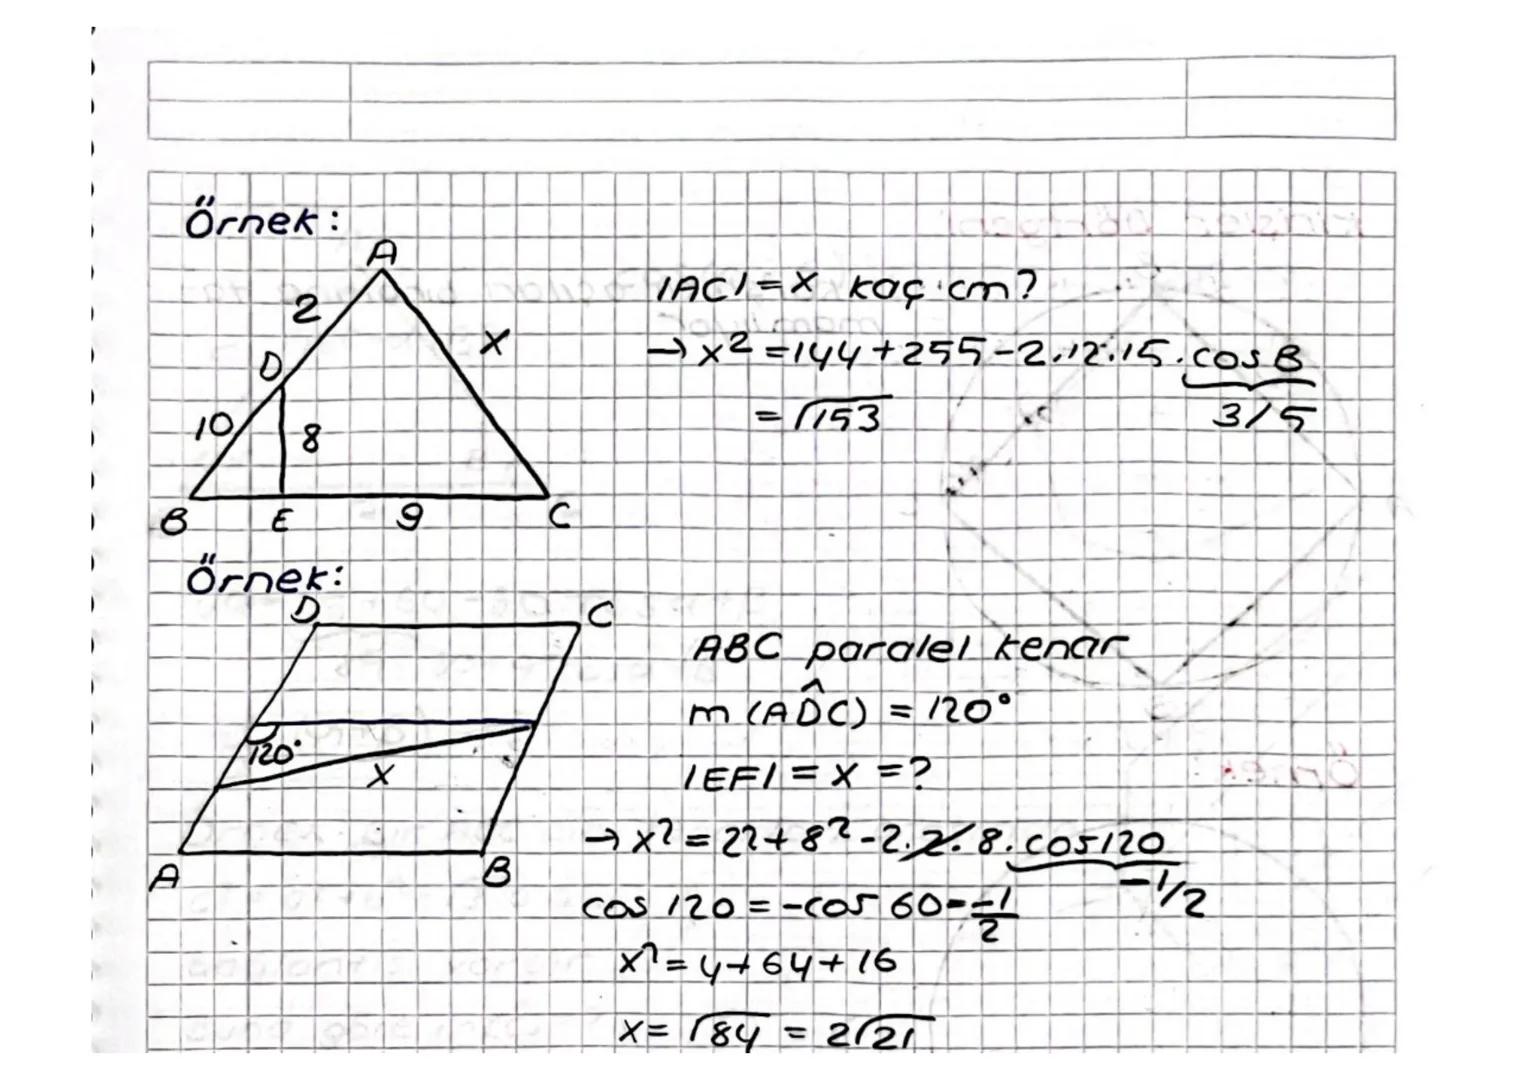 Örnek:
A
2
x
D
10
8
B E 9 C
|AC| = x kaç cm?
→ x² = 144 + 255 - 2.12.15. cos B
3/5
= √153
Örnek:
D C
120°
x
A B
ABC paralel kenar
m (AD̂C) = 120°
|EF| = x = ?
→ x² = 2² + 8² - 2.2.8. cos120
-1/2
cos 120 = -cos 60 - -1/2
x² = 4 + 64 + 16
x = √84 = 2√21